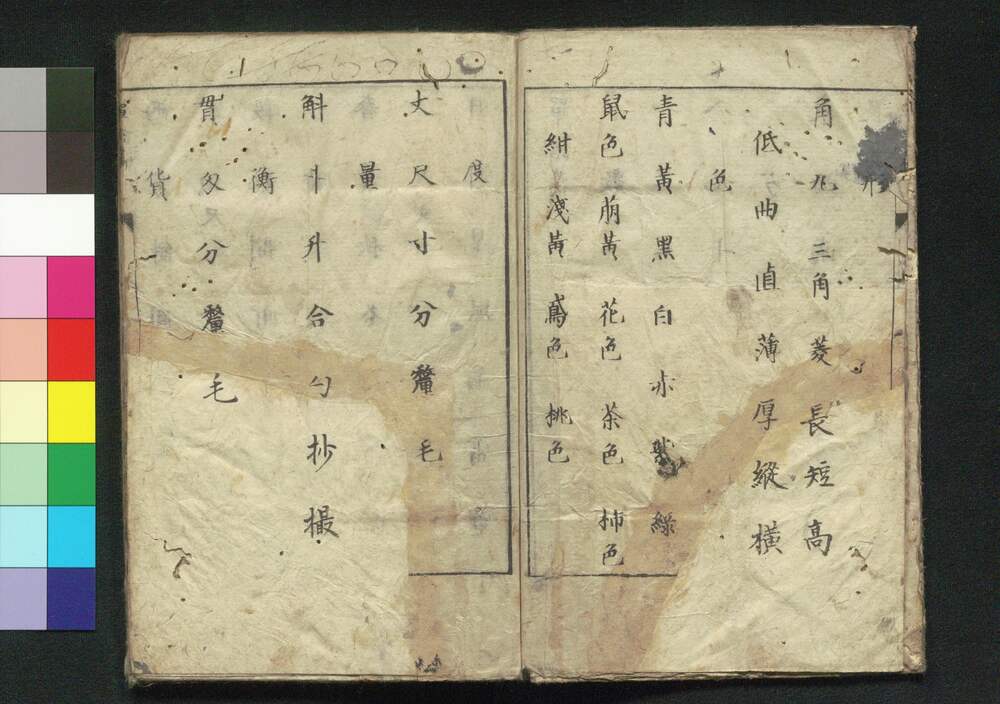 形
角 丸 三角 菱 長 短 高
低 曲 直 薄 厚 縦 横
色
青 黄 黒 白 赤 紫 緑
鼠色 萠黄 花色 茶色 柿色
紺 浅黄 鳶色 桃色
度
丈 尺 寸 分 釐 毛
量
斛 斗 升 合 勺 抄 撮
衡
貫 匁 分 釐 毛
貨